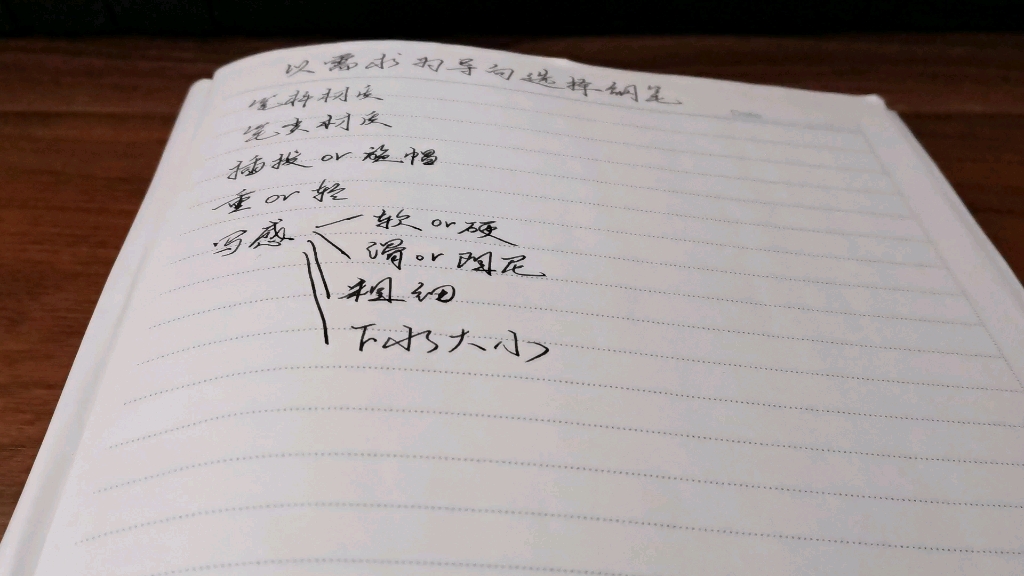 以需求为导向选择钢笔
笔杆材质
笔尖材质
插拔or旋帽
重or轻
写感 软or硬
滑or阻尼
粗细
下水大小